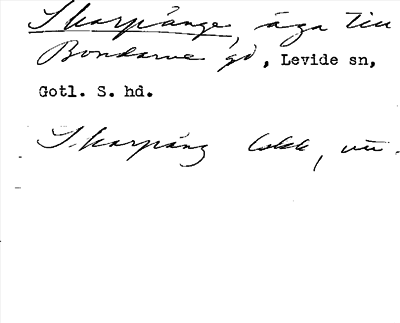 Skarpänge, äga till
Bondarve gd, Levide sn,
Gotl. S. hd.
Skarpäng